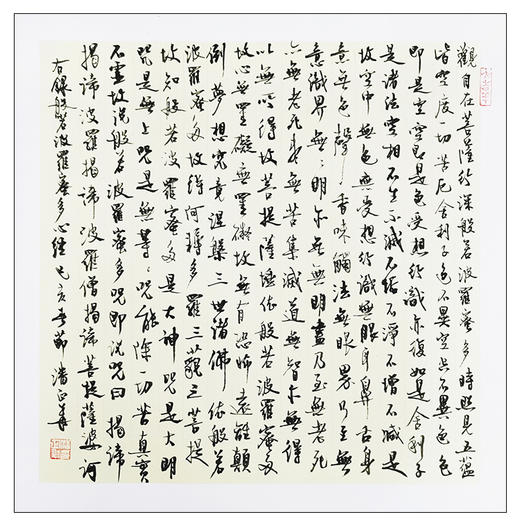 觀自在菩薩行深般若波羅蜜多時照見五蘊
皆空度一切苦厄舍利子色不異空空不異色色
即是空空即是色受想行識亦復如是舍利子
是諸法空相不生不滅不垢不淨不增不減是
故空中無色無受想行識無眼耳鼻舌身
意無色聲香味觸法無眼界乃至無
意識界無無明亦無無明盡乃至無老死
亦無老死盡無苦集滅道無智亦無得
以無所得故菩提薩埵依般若波羅蜜多
故心無罣礙無罣礙故無有恐怖遠離顛
倒夢想究竟涅槃三世諸佛依般若
波羅蜜多故得阿耨多羅三藐三菩提
故知般若波羅蜜多是大神咒是大明
咒是無上咒是無等等咒能除一切苦真實
不虛故說般若波羅蜜多咒即說咒曰揭諦
揭諦波羅揭諦波羅僧揭諦菩提薩婆訶
右錄般若波羅蜜多心經己亥春節潘正